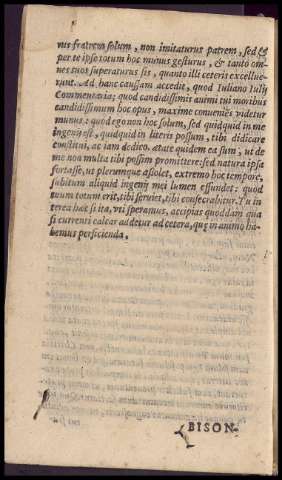 uus fratrem solum, non imitaturus patrem, sed &
per te ipse totum hoc munus gesturus, & tanto om-
nes tuos superaturus sis, quanto illi ceteris excellue-
runt. Ad hanc caussam accedit, quod Iuliano Iulij
Commentaria; quod candidissimis animi tui moribus
candidissimum hoc opus, maxime conueniẽs videtur
munus: quod ego non hoc solum, sed quidquid in me
ingenij est, quidquid in literis possum, tibi didicare
constitui, ac iam dedico. atque quidem ea sum, ut de
me non multa tibi possim promittere: sed natura ipsa
fortasse, ut plerumque assolet, extremo hoc tempore,
subitum aliquid ingenij mei lumen effundet: quod
tuum totum erit, tibi seruiet, tibi consecrabitur. Tu in
terea hæc si ita, vti speramus, accipias quoddam quasi
si currenti calcar addetur ad cetera, quę in animo ha-
bemus perficienda.
BISON-